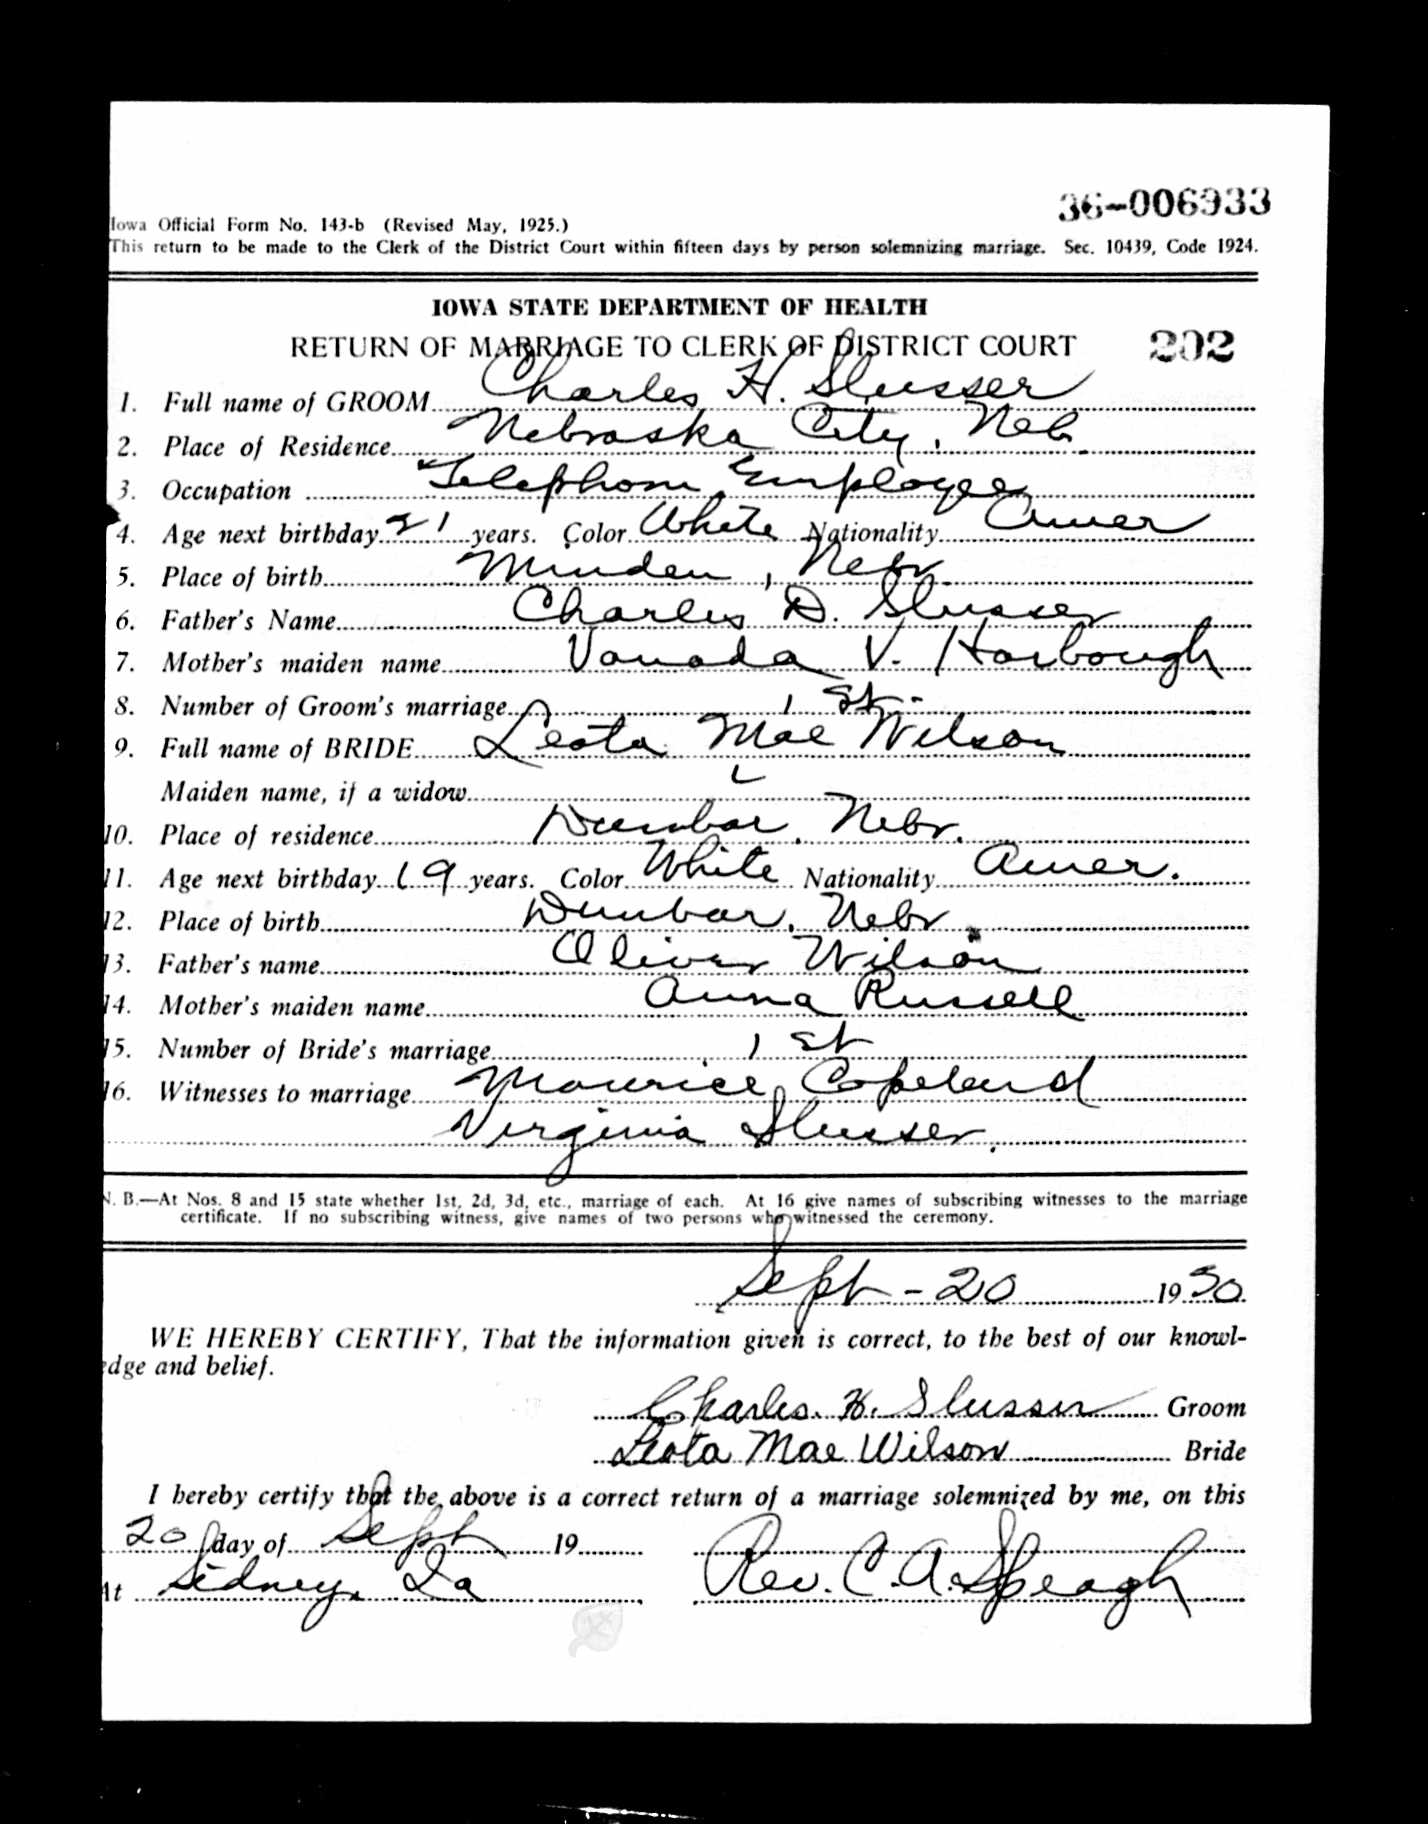 36-006933
Iowa Official Form No. 143-b (Revised May, 1925.)
This return to be made to the Clerk of the District Court within fifteen days by person solemnizing marriage. Sec. 10439, Code 1924.
IOWA STATE DEPARTMENT OF HEALTH
RETURN OF MARRIAGE TO CLERK OF DISTRICT COURT 202
1. Full name of GROOM Charles H. Slusser
2. Place of Residence Nebraska City, Neb.
3. Occupation Telephone Employee
4. Age next birthday 21 years. Color White Nationality Amer
5. Place of birth Minden, Nebr.
6. Father's Name Charles D. Slusser
7. Mother's maiden name Vanada V. Harbough
8. Number of Groom's marriage 1 st.
9. Full name of BRIDE Leota Mae Wilson
Maiden name, if a widow
10. Place of residence Dunbar, Nebr.
11. Age next birthday 19 years. Color White Nationality Amer.
12. Place of birth Dunbar, Nebr
13. Father's name Oliver Wilson
14. Mother's maiden name Anna Russell
15. Number of Bride's marriage 1 st
16. Witnesses to marriage Maurice Copeland
Virginia Slusser.
N. B.—At Nos. 8 and 15 state whether 1st, 2d, 3d, etc., marriage of each. At 16 give names of subscribing witnesses to the marriage
certificate. If no subscribing witness, give names of two persons who witnessed the ceremony.
Sept - 20 1930
WE HEREBY CERTIFY, That the information given is correct, to the best of our knowl-
edge and belief.
Charles. H. Slusser Groom
Leota Mae Wilson Bride
I hereby certify that the above is a correct return of a marriage solemnized by me, on this
20 day of Sept 19
At Sidney, Ia Rev. C. A. Speagh